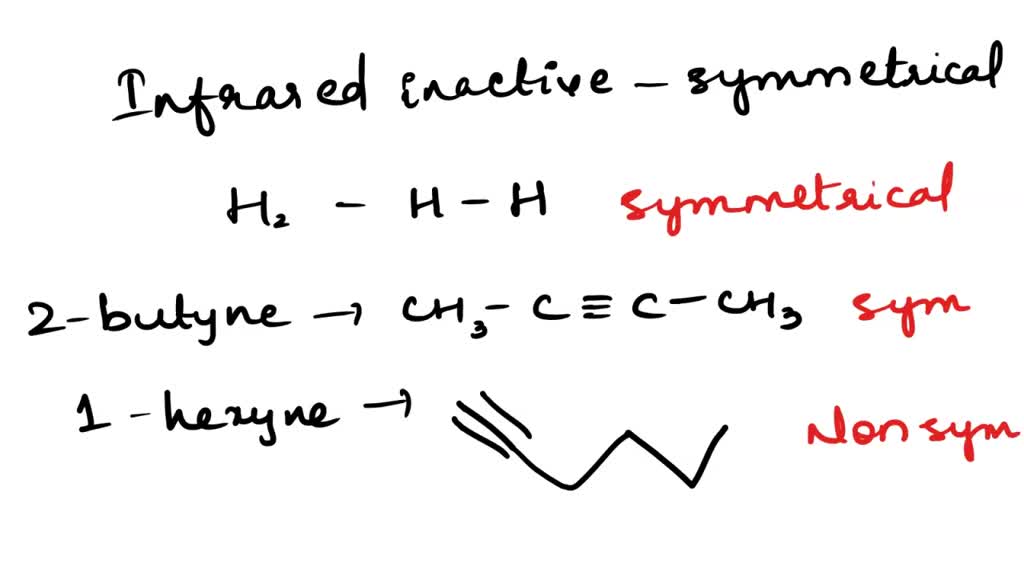 Infrared inactive - symmetrical
H₂ - H-H symmetrical
2-butyne → CH₃-C≡C-CH₃ sym
1-hexyne → Non sym